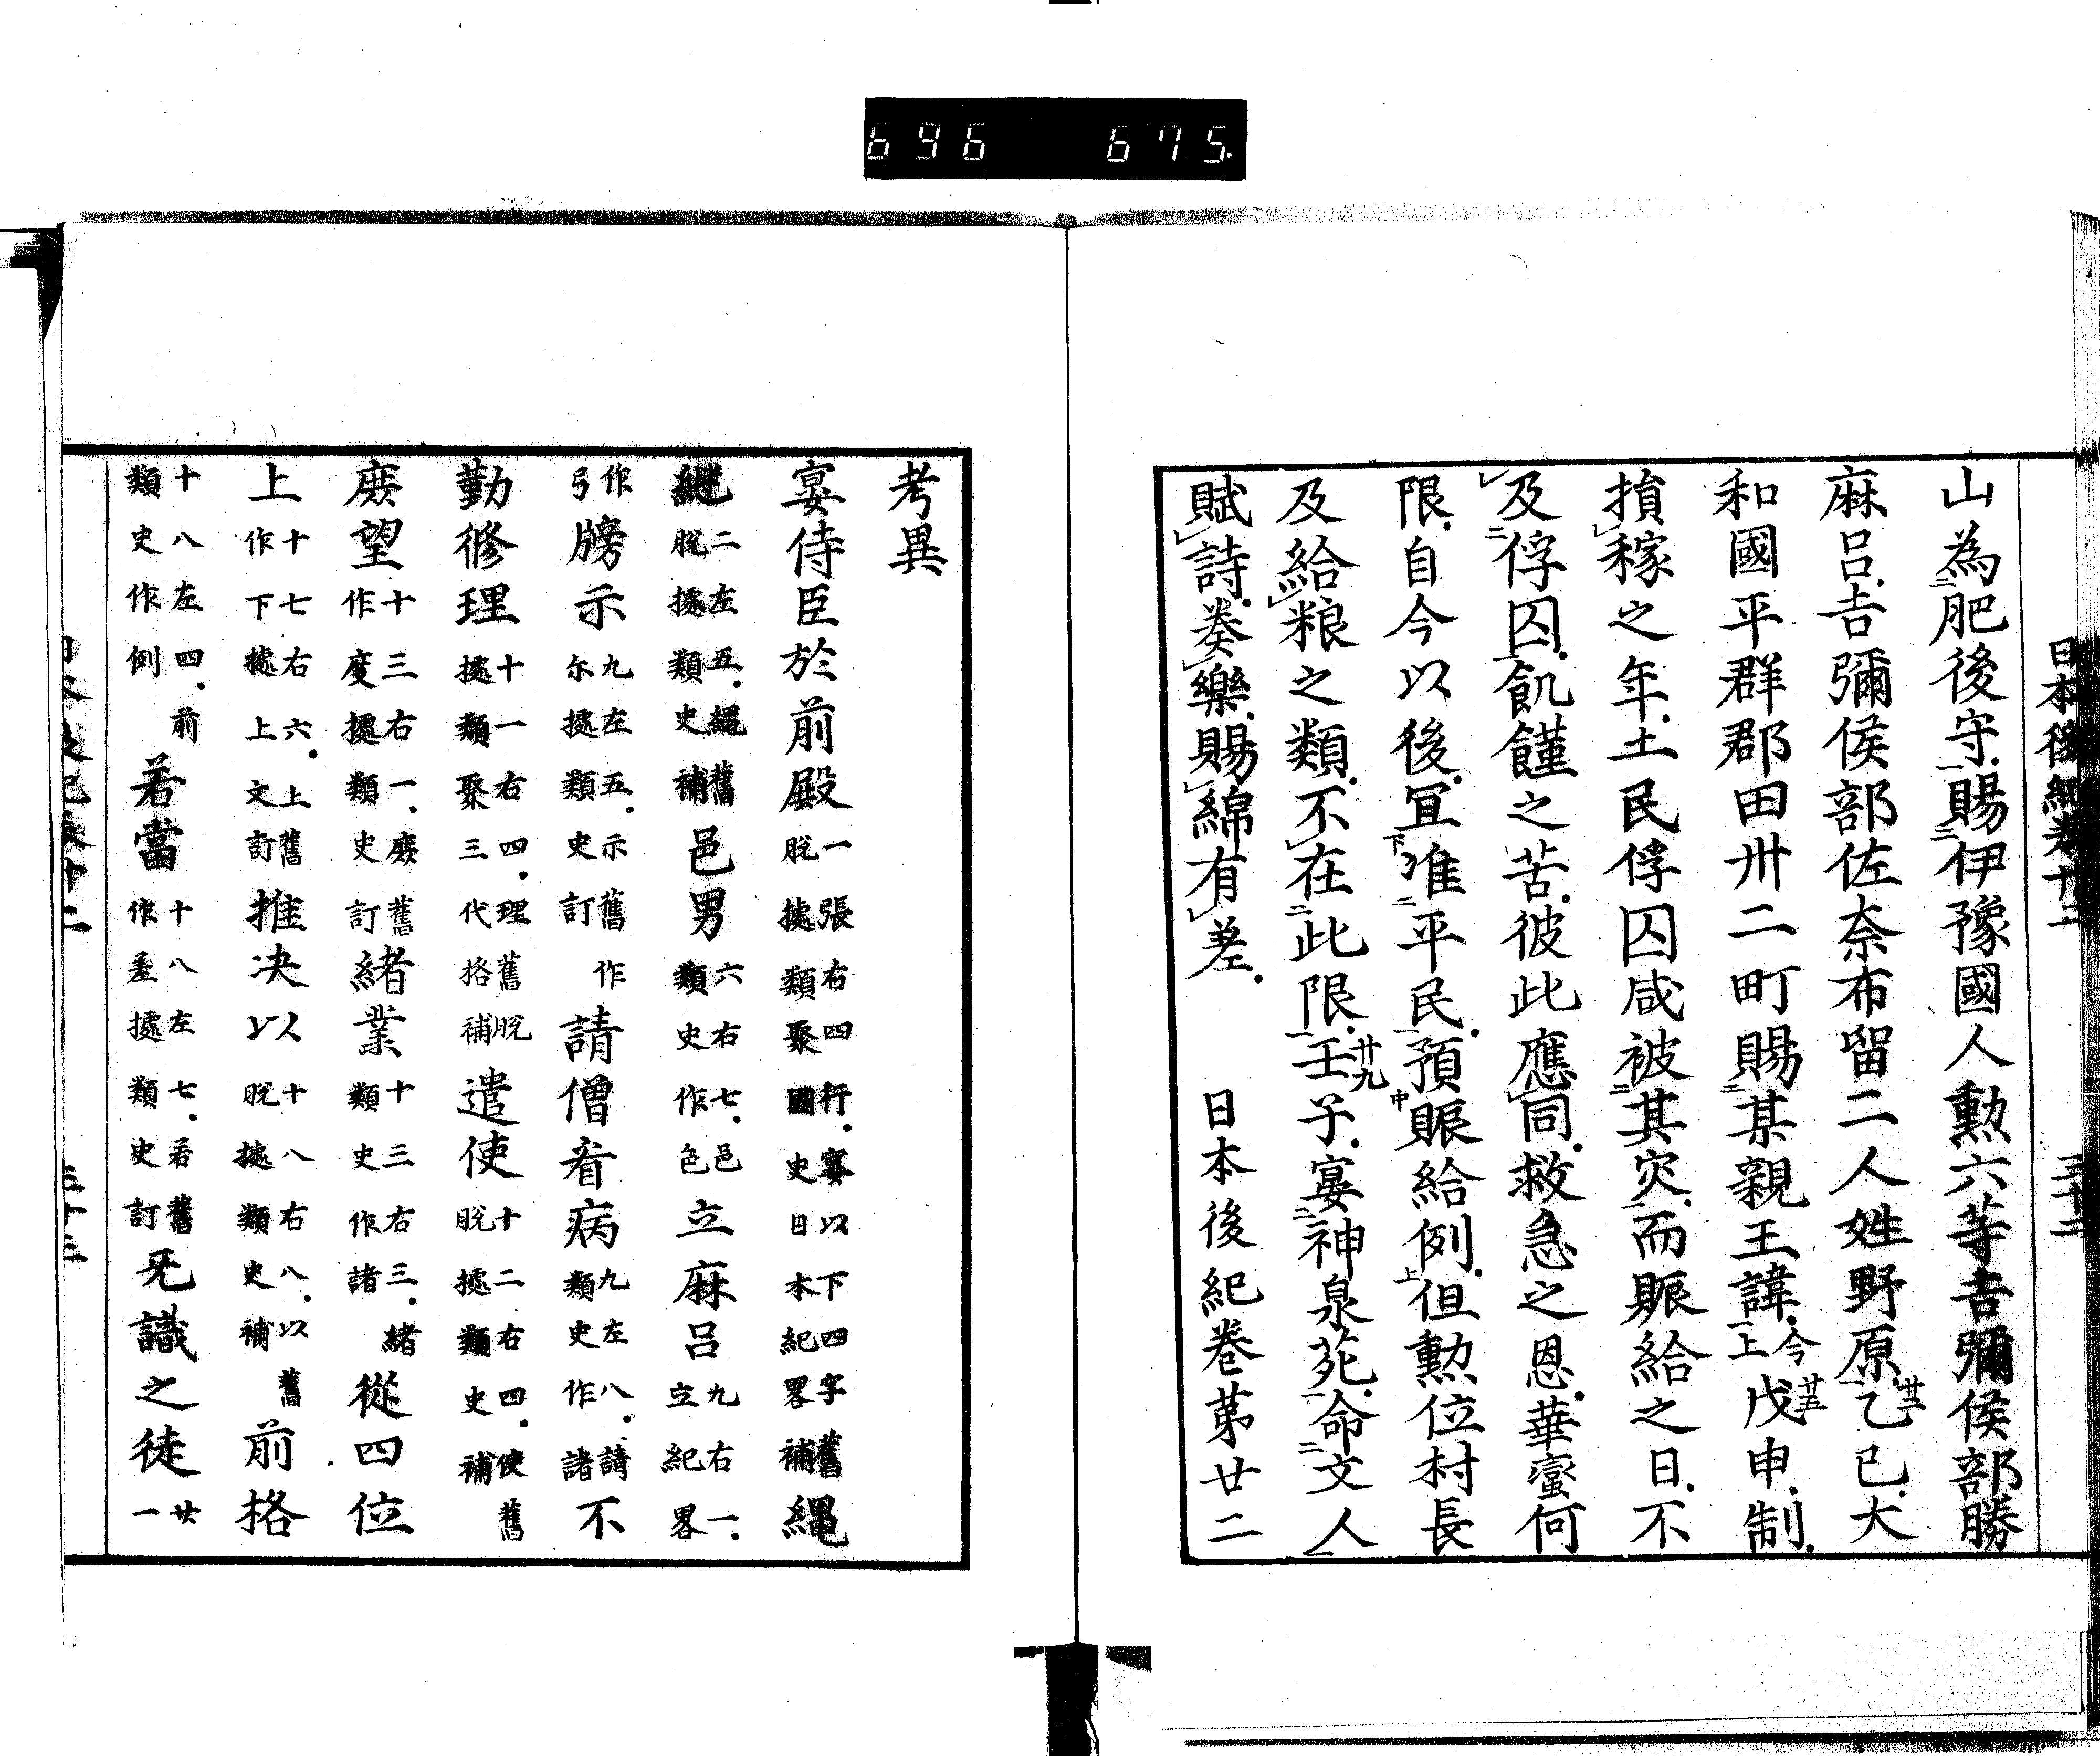 696 675
日本後紀卷廿二 三十二
山為肥後守賜伊豫國人勲六等吉彌侯部勝
麻呂吉彌侯部佐奈布留二人姓野原乙巳大
和國平群郡田卅二町賜某親王諱今上戊申制
損稼之年土民俘囚咸被其灾而賑給之日不
及俘囚飢饉之苦彼此應同救急之恩華蠻何
限自今以後冝准平民預賑給例但勲位村長
及給粮之類不在此限壬子宴神泉苑命文人
賦詩奏樂賜綿有差 日本後紀卷第廿二
考異
宴侍臣於前殿一張右四行宴以下四字舊脫據類聚國史日本紀畧補繩
継二左五繩舊脫據類史補邑男六右七邑類史作色立麻呂九右一立紀畧
作弓牓示九左五示舊作尓據類史訂請僧看病九左八請類史作諸不
勤修理十一右四理舊脫據類聚三代格補遣使十二右四使舊脫據類史補
廢望十三右一廢舊作度據類史訂緒業十三右三緒類史作諸從四位
上十七右六上舊作下據上文訂推决以十八右八以舊脫據類史補前格
十八左四前類史作例若當十八左七若舊作差據類史訂无識之徒廿一